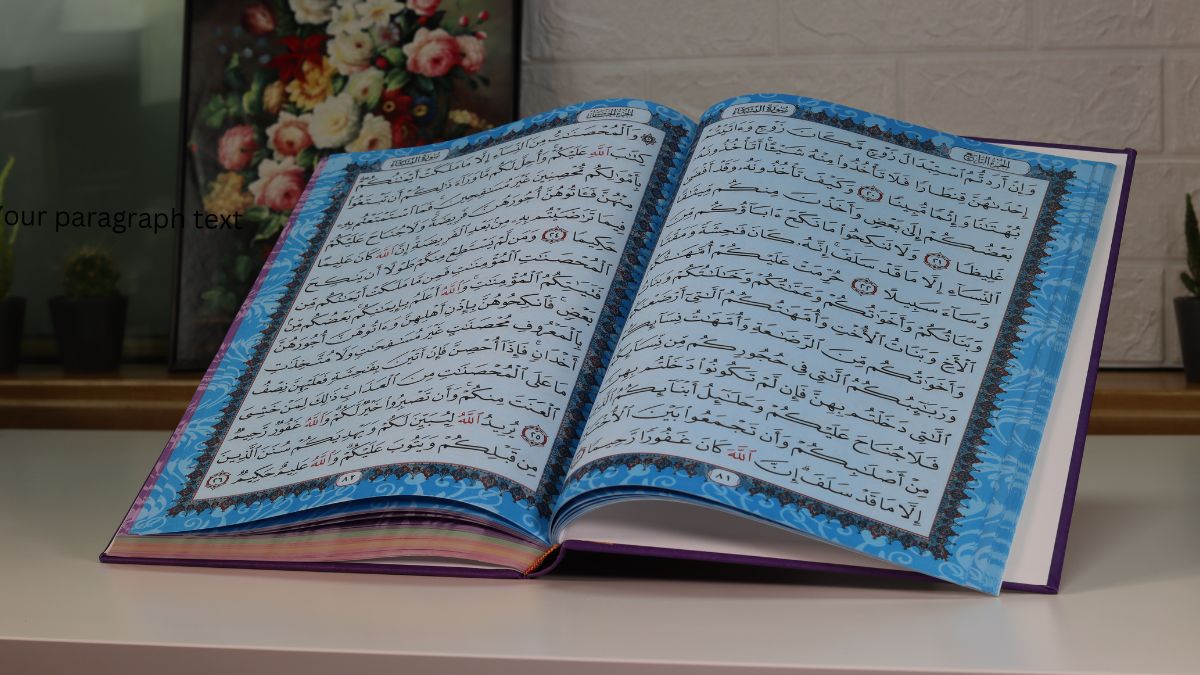 سُورَةُ النِّسَاءِ
الجُزْءُ الرَّابِعُ
وَإِنْ أَرَدتُّمُ ٱسْتِبْدَالَ زَوْجٍ مَّكَانَ زَوْجٍ وَءَاتَيْتُمْ
إِحْدَىٰهُنَّ قِنطَارًا فَلَا تَأْخُذُوا۟ مِنْهُ شَيْـًٔا أَتَأْخُذُونَهُۥ
بُهْتَـٰنًا وَإِثْمًا مُّبِينًا ٢٠ وَكَيْفَ تَأْخُذُونَهُۥ وَقَدْ أَفْضَىٰ
بَعْضُكُمْ إِلَىٰ بَعْضٍ وَأَخَذْنَ مِنكُم مِّيثَـٰقًا
غَلِيظًا ٢١ وَلَا تَنكِحُوا۟ مَا نَكَحَ ءَابَآؤُكُم مِّنَ
ٱلنِّسَآءِ إِلَّا مَا قَدْ سَلَفَ إِنَّهُۥ كَانَ فَـٰحِشَةً وَمَقْتًا
وَسَآءَ سَبِيلًا ٢٢ حُرِّمَتْ عَلَيْكُمْ أُمَّهَـٰتُكُمْ
وَبَنَاتُكُمْ وَأَخَوَٰتُكُمْ وَعَمَّـٰتُكُمْ وَخَـٰلَـٰتُكُمْ وَبَنَاتُ
ٱلْأَخِ وَبَنَاتُ ٱلْأُخْتِ وَأُمَّهَـٰتُكُمُ ٱلَّـٰتِىٓ أَرْضَعْنَكُمْ
وَأَخَوَٰتُكُم مِّنَ ٱلرَّضَـٰعَةِ وَأُمَّهَـٰتُ نِسَآئِكُمْ
وَرَبَـٰٓئِبُكُمُ ٱلَّـٰتِى فِى حُجُورِكُم مِّن نِّسَآئِكُمُ
ٱلَّـٰتِى دَخَلْتُم بِهِنَّ فَإِن لَّمْ تَكُونُوا۟ دَخَلْتُم بِهِنَّ
فَلَا جُنَاحَ عَلَيْكُمْ وَحَلَـٰٓئِلُ أَبْنَآئِكُمُ ٱلَّذِينَ
مِنْ أَصْلَـٰبِكُمْ وَأَن تَجْمَعُوا۟ بَيْنَ ٱلْأُخْتَيْنِ
إِلَّا مَا قَدْ سَلَفَ إِنَّ ٱللَّهَ كَانَ غَفُورًا رَّحِيمًا
٨١
الجُزْءُ الخَامِسُ
سُورَةُ النِّسَاءِ
وَٱلْمُحْصَنَـٰتُ مِنَ ٱلنِّسَآءِ إِلَّا مَا مَلَكَتْ أَيْمَـٰنُكُمْ
كِتَـٰبَ ٱللَّهِ عَلَيْكُمْ وَأُحِلَّ لَكُم مَّا وَرَآءَ ذَٰلِكُمْ أَن تَبْتَغُوا۟
بِأَمْوَٰلِكُم مُّحْصِنِينَ غَيْرَ مُسَـٰفِحِينَ فَمَا ٱسْتَمْتَعْتُم بِهِۦ
مِنْهُنَّ فَـَٔاتُوهُنَّ أُجُورَهُنَّ فَرِيضَةً وَلَا جُنَاحَ عَلَيْكُمْ
فِيمَا تَرَٰضَيْتُم بِهِۦ مِنۢ بَعْدِ ٱلْفَرِيضَةِ إِنَّ ٱللَّهَ كَانَ عَلِيمًا
حَكِيمًا ٢٤ وَمَن لَّمْ يَسْتَطِعْ مِنكُمْ طَوْلًا أَن يَنكِحَ
ٱلْمُحْصَنَـٰتِ ٱلْمُؤْمِنَـٰتِ فَمِن مَّا مَلَكَتْ أَيْمَـٰنُكُم مِّن
فَتَيَـٰتِكُمُ ٱلْمُؤْمِنَـٰتِ وَٱللَّهُ أَعْلَمُ بِإِيمَـٰنِكُم بَعْضُكُم مِّنۢ
بَعْضٍ فَٱنكِحُوهُنَّ بِإِذْنِ أَهْلِهِنَّ وَءَاتُوهُنَّ أُجُورَهُنَّ
بِٱلْمَعْرُوفِ مُحْصَنَـٰتٍ غَيْرَ مُسَـٰفِحَـٰتٍ وَلَا مُتَّخِذَٰتِ
أَخْدَانٍ فَإِذَآ أُحْصِنَّ فَإِنْ أَتَيْنَ بِفَـٰحِشَةٍ فَعَلَيْهِنَّ نِصْفُ
مَا عَلَى ٱلْمُحْصَنَـٰتِ مِنَ ٱلْعَذَابِ ذَٰلِكَ لِمَنْ خَشِىَ
ٱلْعَنَتَ مِنكُمْ وَأَن تَصْبِرُوا۟ خَيْرٌ لَّكُمْ وَٱللَّهُ غَفُورٌ رَّحِيمٌ
٢٥ يُرِيدُ ٱللَّهُ لِيُبَيِّنَ لَكُمْ وَيَهْدِيَكُمْ سُنَنَ ٱلَّذِينَ
مِن قَبْلِكُمْ وَيَتُوبَ عَلَيْكُمْ وَٱللَّهُ عَلِيمٌ حَكِيمٌ ٢٦
٨٢
Your paragraph text